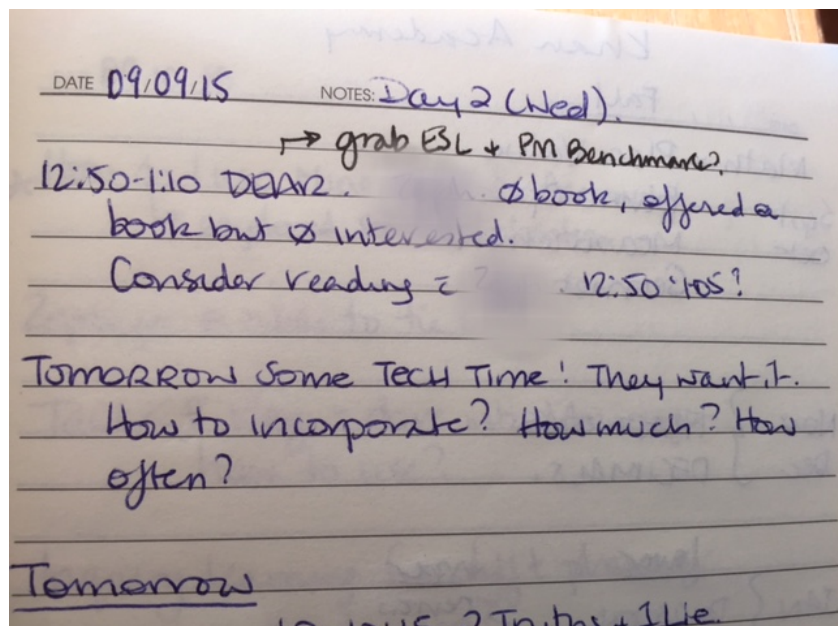 DATE 09/09/15 NOTES: Day 2 (Wed).
→ grab ESL + PM Benchmarks?
12:50-1:10 DEAR. Ø book, offered a
book but Ø interested.
Consider reading 12:50-1:05?
TOMORROW SOME TECH TIME! They want it.
How to incorporate? How much? How
often?
Tomorrow
2 Truths + 1 Lie.